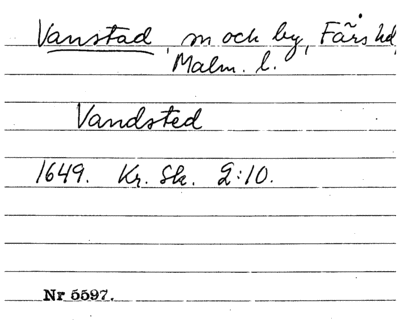 Vanstad, sn och by, Färs hd,
Malm. l.
Vandsted
1649. Kr. Sk. 2:10.
Nr 5597.